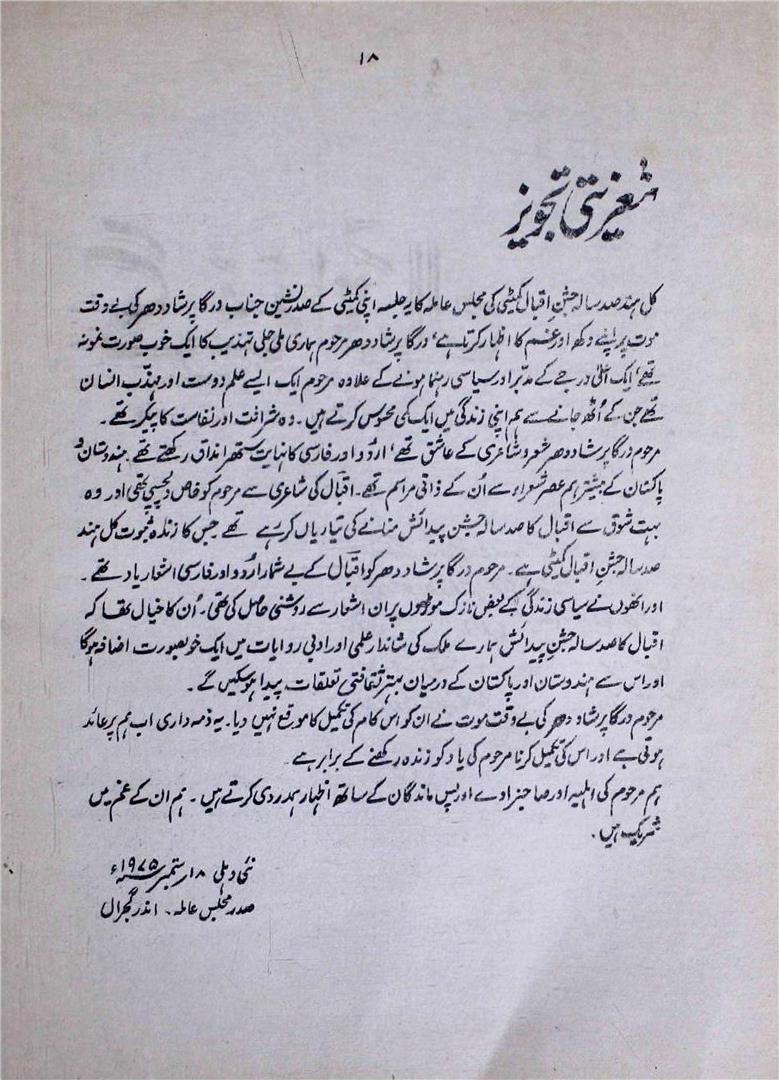 ۱۸
تعزیتی تجویز
کل ہند صد سالہ جشنِ اقبال کمیٹی کی مجلس عاملہ کا یہ جلسہ اپنی کمیٹی کے صدر نشین جناب درگا پرشاد دھر کی بے وقت
موت پر اپنے دکھ اور غم کا اظہار کرتا ہے، درگا پرشاد دھر مرحوم ہماری ملی جلی تہذیب کا ایک خوب صورت نمونہ
تھے، ایک اعلیٰ درجے کے مدبّر اور سیاسی رہنما ہونے کے علاوہ مرحوم ایک ایسے علم دوست اور مہذّب انسان
تھے جن کے اُٹھ جانے سے ہم اپنی زندگی میں ایک کمی محسوس کرتے ہیں۔ وہ شرافت اور نفاست کا پیکر تھے۔
مرحوم درگا پرشاد دھر شعر و شاعری کے عاشق تھے، اردو اور فارسی کا نہایت ستھرا مذاق رکھتے تھے۔ ہندستان و
پاکستان کے بیشتر ہم عصر شعراء سے اُن کے ذاتی مراسم تھے۔ اقبال کی شاعری سے مرحوم کو خاص دلچسپی تھی اور وہ
بہت شوق سے اقبال کا صد سالہ جشنِ پیدائش منانے کی تیاریاں کر رہے تھے جس کا زندہ ثبوت کل ہند
صد سالہ جشنِ اقبال کمیٹی ہے۔ مرحوم درگا پرشاد دھر کو اقبال کے بے شمار اُردو اور فارسی اشعار یاد تھے۔
اور انھوں نے سیاسی زندگی کے بعض نازک موڑوں پر ان اشعار سے روشنی حاصل کی تھی۔ اُن کا خیال تھا کہ
اقبال کا صد سالہ جشنِ پیدائش ہمارے ملک کی شاندار علمی اور ادبی روایات میں ایک خوبصورت اضافہ ہوگا
اور اس سے ہندوستان اور پاکستان کے درمیان بہتر ثقافتی تعلقات پیدا ہو سکیں گے۔
مرحوم درگا پرشاد دھر کی بے وقت موت نے ان کو اس کام کی تکمیل کا موقع نہیں دیا۔ یہ ذمہ داری اب ہم پر عائد
ہوتی ہے اور اس کی تکمیل کرنا مرحوم کی یاد کو زندہ رکھنے کے برابر ہے۔
ہم مرحوم کی اہلیہ اور صاحبزادے اور پس ماندگان کے ساتھ اظہار ہمدردی کرتے ہیں۔ ہم ان کے غم میں
شریک ہیں۔
نئی دہلی ۱۸ ستمبر ۱۹۷۵ء
صدر مجلس عاملہ۔ اندر گجرال